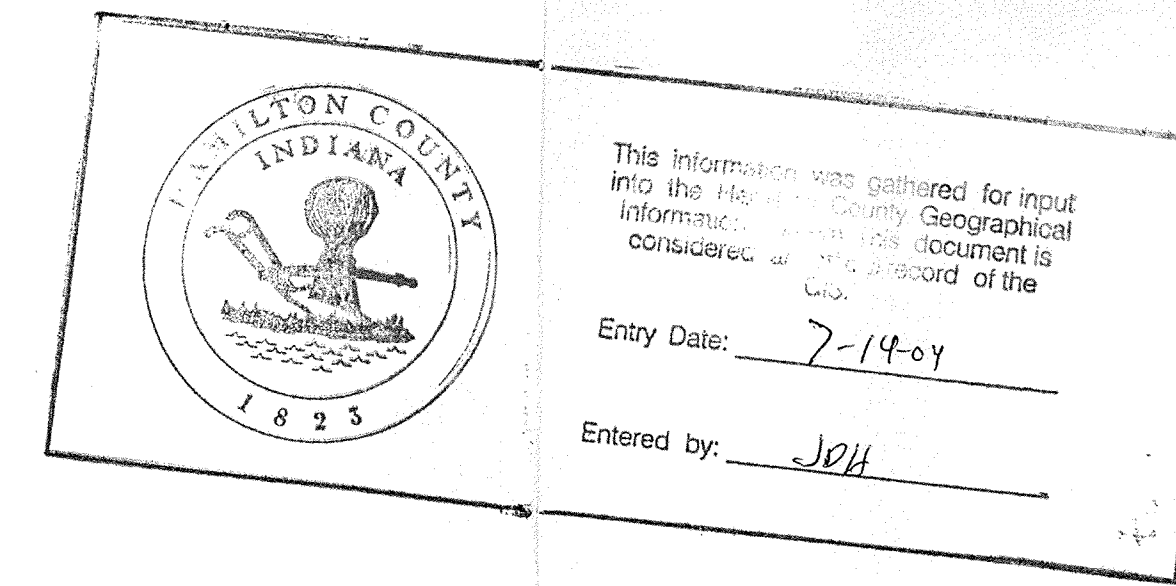 HAMILTON COUNTY
INDIANA
1823
This information was gathered for input
into the County Geographical
Information this document is
considered record of the
Entry Date: 7-14-04
Entered by: JDH